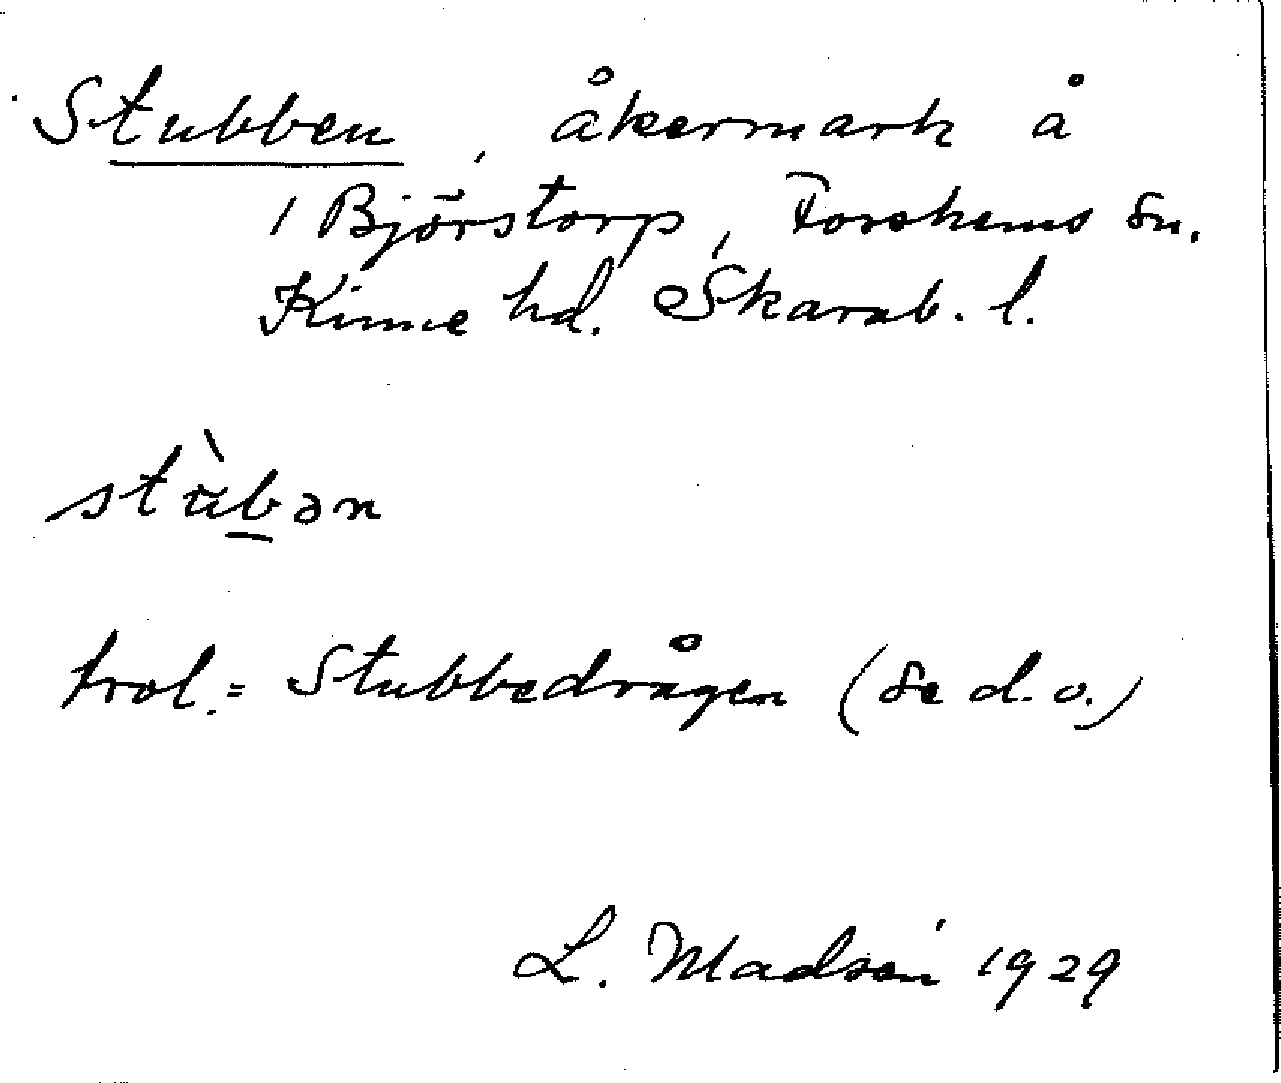 Stubben, åkermark å
1 Björstorp, Forshems sn.
Kinne hd. Skarab. l.
stùbən
trol. = Stubbedrågen (se d.o.)
L. Madsén 1929